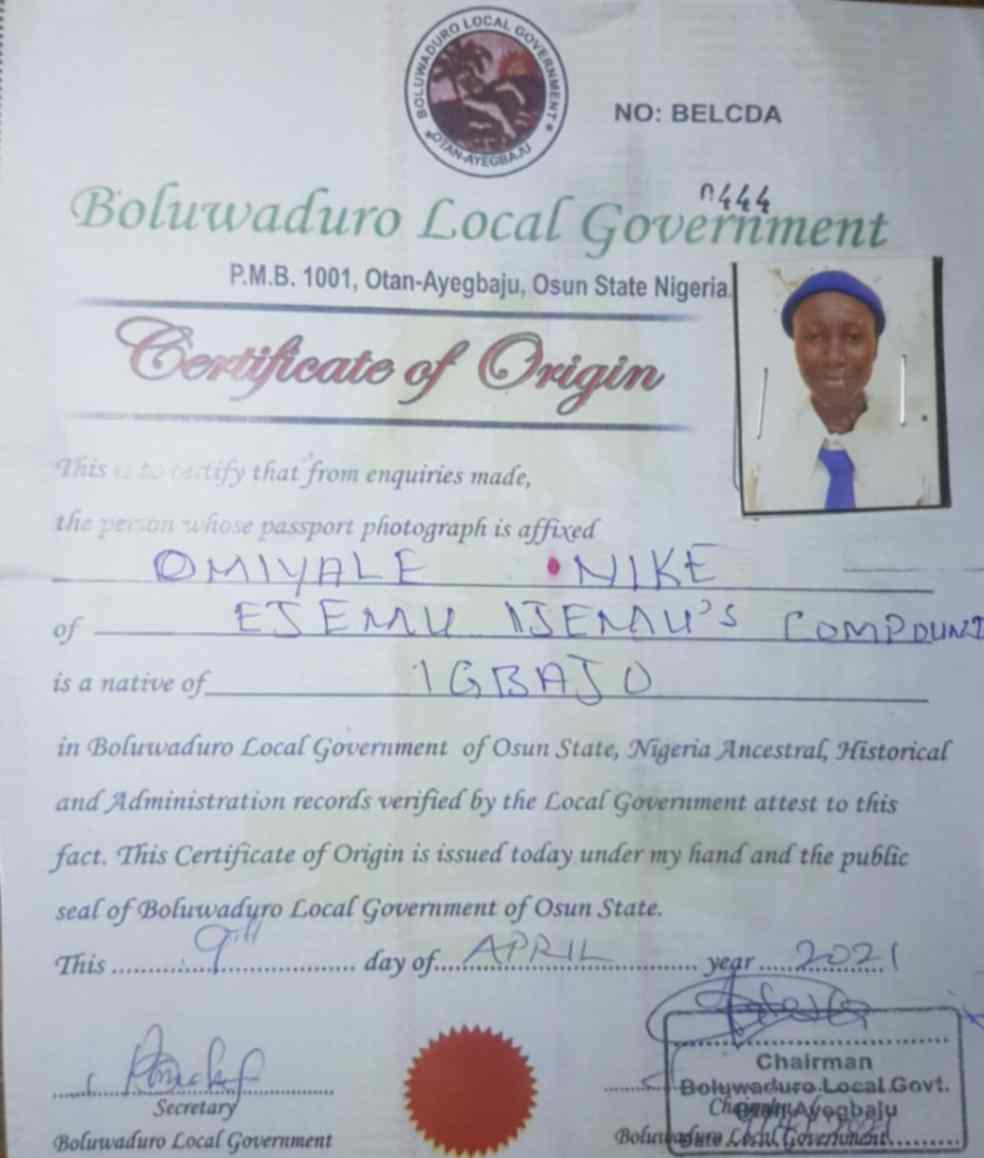 BOLUWADURO LOCAL GOVERNMENT
OTAN-AYEGBAJU
NO: BELCDA
0444
Boluwaduro Local Government
P.M.B. 1001, Otan-Ayegbaju, Osun State Nigeria.
Certificate of Origin
This is to certify that from enquiries made,
the person whose passport photograph is affixed
OMIYALE NIKE
of EJEMU IJEMU'S COMPOUND
is a native of IGBAJO
in Boluwaduro Local Government of Osun State, Nigeria Ancestral, Historical
and Administration records verified by the Local Government attest to this
fact. This Certificate of Origin is issued today under my hand and the public
seal of Boluwaduro Local Government of Osun State.
This 9th day of APRIL year 2021
Secretary
Boluwaduro Local Government
Chairman
Boluwaduro Local Govt.
Otan Ayegbaju
Chairman
Boluwaduro Local Government